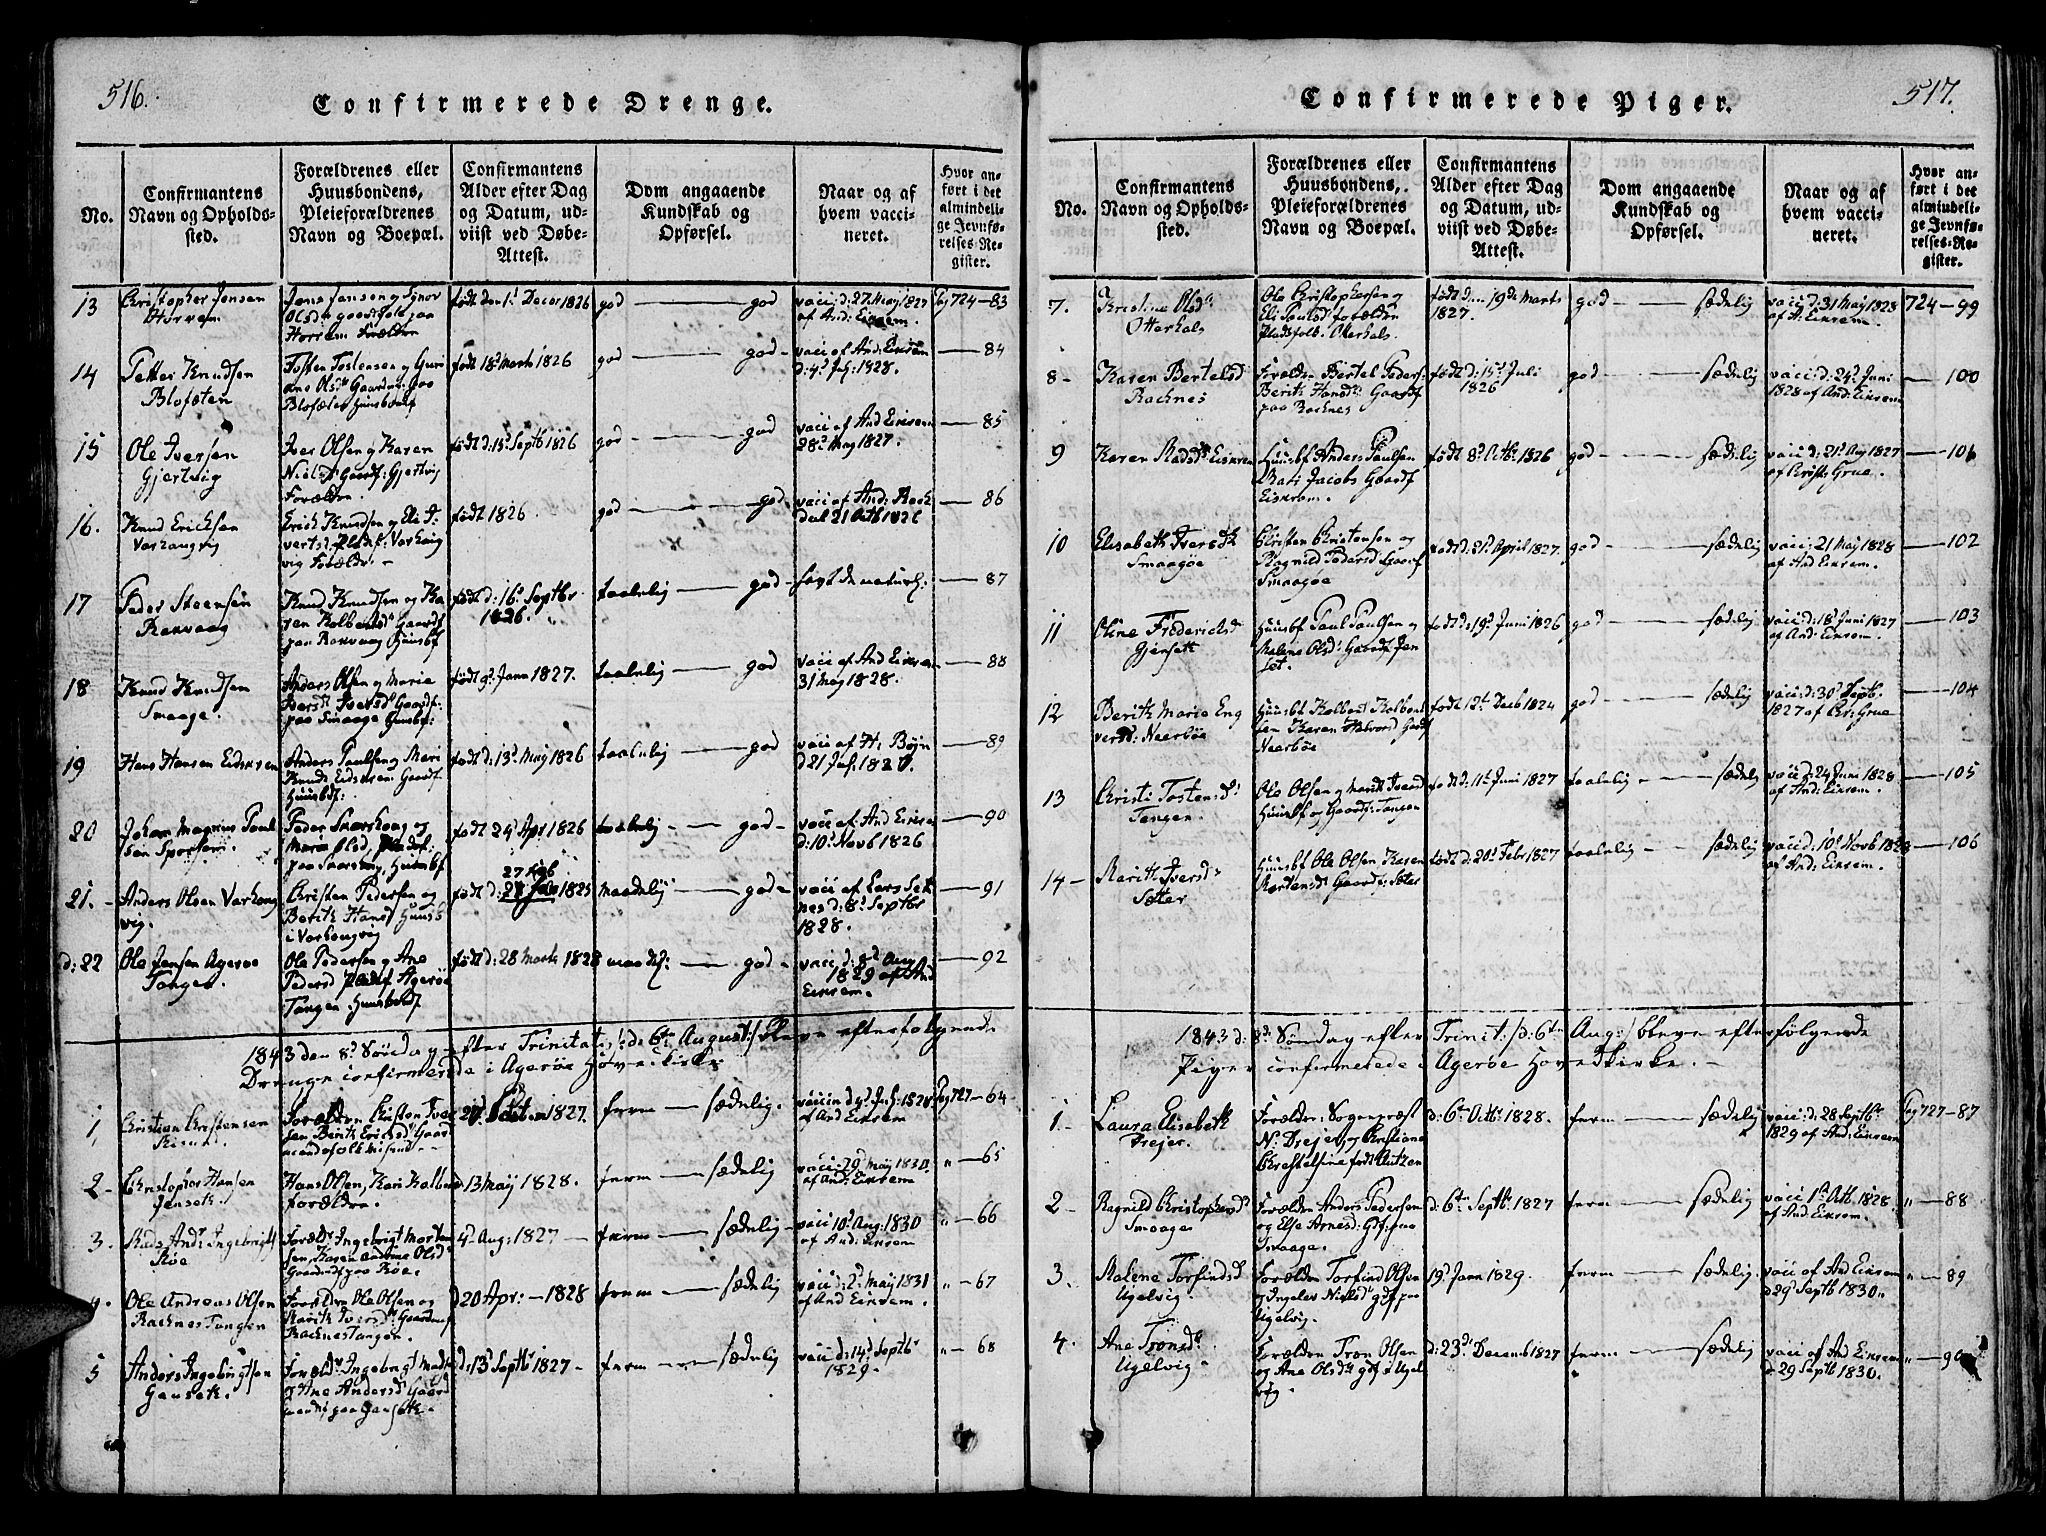 516.
Confirmerede Drenge.
No.
Confirmantens
Navn og Opholds-
sted.
Forældrenes eller
Huusbondens,
Pleieforældrenes
Navn og Boepæl.
Confirmantens
Alder efter Dag
og Datum, ud-
viist ved Døbe-
Attest.
Dom angaaende
Kundskab og
Opførsel.
Naar og af
hvem vacci-
neret.
Hvor an-
ført i det
almindeli-
ge Jevnfø-
relses-Re-
gister.
13
Christopher Jensen
Horrem
Olsd gaardfolk paa
Horrem Forældre
født den 1' Decbr 1826
god — god
vacc: d: 27 May 1827
af And: Eikrem.
Pag 724 - 83
14
Petter Knudsen
Blofsten
Tosten Tostensen og Guri
født 18d Marts 1826
god — god
vacc af And: Eikrem
d: 4d July 1828.
84
15
Ole Iversen
Gjertvig
Iver Olsen og Karen
Nielsd Gaardf: Gjertvig
Forældre.
født d: 15d Septb 1826
god — god
vacc af And Eikrem
28d May 1827.
85
16.
Knud Ericksen
Varhaugvig
Erich Knudsen og Eli I-
vig Forældr: -
født 1826
god — god
86
17
Peder Steensen
Rakvaag
Knud Knudsen og Ka
paa Rakvaag Huusbf
født d: 16d Septbr
1826.
taalelig — god
havt de naturl:
87
18
Knud Knudsen
Smaage.
Anders Olsen og Marie
Iversd Gaardf:
paa Smaage Huusbf:
født 9d Janr 1827.
taalelig — god
vacc af And Eikrem
31 May 1828.
88
19
Hans Hansen Eidskrem
Anders Paulsen og Mari
Knuds Eidskrem Gaardf.
Huusbf:
født d: 13d May 1826
taalelig — god
vacc af H. Bøyn
89
20
Johan Magnus Paul
sen
født 24d Apr 1826
taalelig — god
vacc af And Eikrem
d: 10d Novb 1826
90
21.
Anders Olsen Varhaug
vig.
Christen Pedersen og
Berith Hansd Huusb
i Varhaugvig
27 Feb
født d: 1825
maadelig — god
nes d: 8d Septbr
1828.
91
d: 22
Ole Jensen Agerøe
Tangen.
Ole Pedersen og Ane
Pedersd Agerøe
Tangen, Huusbondf
født d: 28 Marts 1828
maadel: — god
vacc. d. 8d Aug
1829 af And
Eikrem.
92
1843 den 8d Søndag efter Trinitatis /: d: 6te August :/ bleve efterfølgende
Drenge confirmerede i Agerøe Hovedkirke
1
Christian Christensen
Forældre: Christen Iver
sen Berith Ericksd Gaard
1827.
ferm — sædelig.
af And Eikrem
Pag 727 - 64
2
Christopher Hansen
Jensæt.
Hans Olsen, Kari Kolbens
forældre.
13 May 1828.
ferm — sædelig
vacc: 29d May 1830.
af And: Eikrem
" - 65
3.
Mads Andr: Ingebrigts
Røe
Forældr Ingebrigt Morten
sen, Karen Andrine Olsd
Gaardmdf paa Røe.
4d Aug: 1827 -
ferm — sædelig
vacc 10d Aug: 1830
af And: Eikrem
" - 66
4.
Ole Andreas Olsen
Raknes Tangen
Forældre Ole Olsen og
Marith Iversd Gaardmf
Raknestangen.
d 20 Apr: - 1828
ferm — sædelig
vacc: d: 2d May 1831
af And Eikrem.
" - 67
5
Anders Ingebrigtsen
Gauset.
Forældr: Ingebrigt Mads
og Ane Andersd Gaard
d: 13d Septbr 1827 -
ferm — sædelig
vacc: d: 14d Septbr
1829.
" - 68
517.
Confirmerede Piger.
No.
Confirmantens
Navn og Opholds-
sted.
Forældrenes eller
Huusbondens,
Pleieforældrenes
Navn og Boepæl.
Confirmantens
Alder efter Dag
og Datum, ud-
viist ved Døbe-
Attest.
Dom angaaende
Kundskab og
Opførsel.
Naar og af
hvem vacci-
neret.
Hvor an-
ført i det
almindeli-
ge Jevnfø-
relses-Re-
gister.
7.
Kristine Olsd
Otterhals
Ole Christophersen og
Eli Paulsd forældre
Pladsfolk. Otterhals.
født d: 19de Marts
1827.
god — sædelig
vacc: d: 31 May 1828
af A: Eikrem.
724 - 99
8
Karen Bertelsd
Raknes
Forældre Bertel Peders:
Berith Hansd: Gaardf
paa Raknes
født d: 15d Juli
1826
god — sædelig
vacc: d: 24d Juni
1828 af And: Eikrem
100
9
Karen Madsd Eiskrem
Huusbf Anders Paulsen
Mari Jacobs Gaardf
Eiskrem.
født 8d Octbr 1826
god — sædelig
vacc: d: 21d Aug 1827
af Christ: Grue.
101
10
Elisabeth Iversdtr
Smaagøe
Christen Christensen og
Ragnild Pedersd Gaardf
Smaagøe
født d: 21d April 1827.
god — sædelig
vacc: 21 May 1828
af And Eikrem.
102
11
Oline Fredericksd
Gjensæth
Huusbf Paul Paulsen og
Malene Olsd: Gaardf Jen
set.
født d: 19d Juni 1826
god — sædelig
vacc: d: 18d Juni 1827
af And: Eikrem.
103
12
Berith Marie Eng
versd: Neerbøe
Huusbf Kolbent Kolben
sen Karen Halvorsd Gaardf
Neerbøe
født 12te Decb 1824
god — sædelig
vacc: d: 30d Septb.
1827 af Chr: Grue
104
13
Christi Tostensd
Tangen.
Ole Olsen og Marith Iversd
Huusbf og Gaardf: Tangen
født d: 11te Juni 1827
taalelig — sædelig
vacc: d: 24 Juni 1828
af And: Eikrem.
105
14
Marith Iversd
Sætter
Huusbf Ole Olsen Karen
Mortensd Gaardf: Sæter
født d: 20d Febr 1827
taalelig — sædelig
vacc: d: 10d Novb 1828
af And: Eikrem.
106
1843 d: 8de Søndag efter Trinit: /: d: 6te Aug: / bleve efterfølgende
Piger confirmerede i Agerøe Hovedkirke. -
1.
Laura Elisabeth
Drejer.
Forældre: Sogneprest
N: Drejer, og Christiane
d: 6te Octb: 1828.
ferm — sædelig
vacc: d: 28 Septbr
1829 af And: Eikrem
Pag 727 - 87
2
Ragnild Christophersd
Smaage
Forældre Anders Pedersen
og Else Arnesd: Gdf: paa
Smaage.
d: 6te Septb: 1827
ferm — sædelig
vacc 1d Octb. 1828.
af And: Eikrem.
" - 88
3.
Malene Torfindsd
Ugelvig.
Forældre Torfind Olsen
og Ingelev Nielsd gdf paa
Ugelvig.
19d Janr 1829.
ferm — sædelig.
vacc af And Eikrem
d 29 Septb 1830.
" - 89
4.
Ane Tronsd
Ugelvig.
Forældre Tron Olsen
og Ane Olsdtr gdf i Ugel
vig.
d: 23d Decemb 1827
ferm — sædelig
vacc af And Eikrem
d 29 Septb 1830.
" - 90